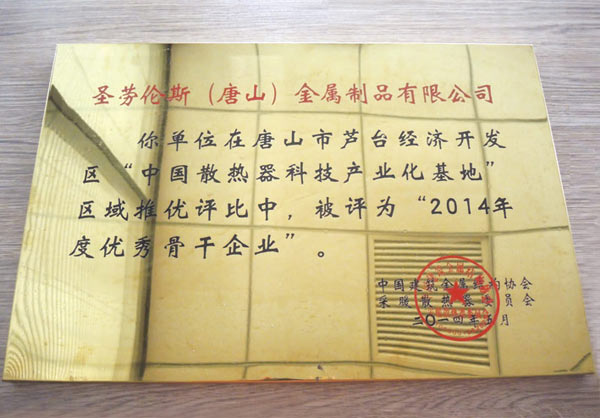 圣劳伦斯（唐山）金属制品有限公司
你单位在唐山市芦台经济开发
区“中国散热器科技产业化基地”
区域推优评比中，被评为“2014年
度优秀骨干企业”。
中国建筑金属结构协会
采暖散热器委员会
二〇一四年五月